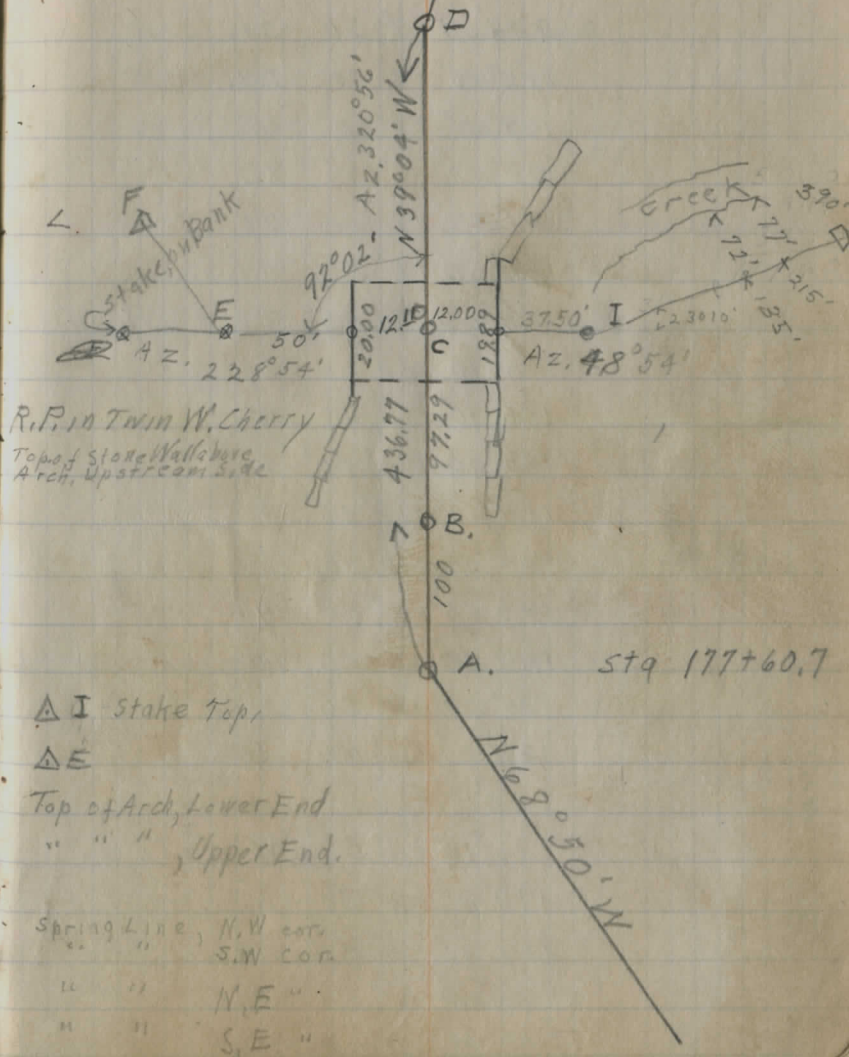 D
Az. 320°56'
N 39°04' W
F
Stake, on Bank
92°02'
Creek
390'
77'
72'
215'
135'
E
50'
20.00
12.10
12.00
C
19.89
37.50'
I
23°10'
Az. 228°54'
Az. 48°54'
R.P. in Twin W. Cherry
Top of Stone Wall above
Arch, Upstream Side
436.77
97.29
B.
100
A.
Sta 177+60.7
N 68°50' W
I Stake Top,
E
Top of Arch, Lower End
" " " , Upper End.
Spring Line, N.W cor.
" " S.W cor.
" " N,E "
" " S,E "